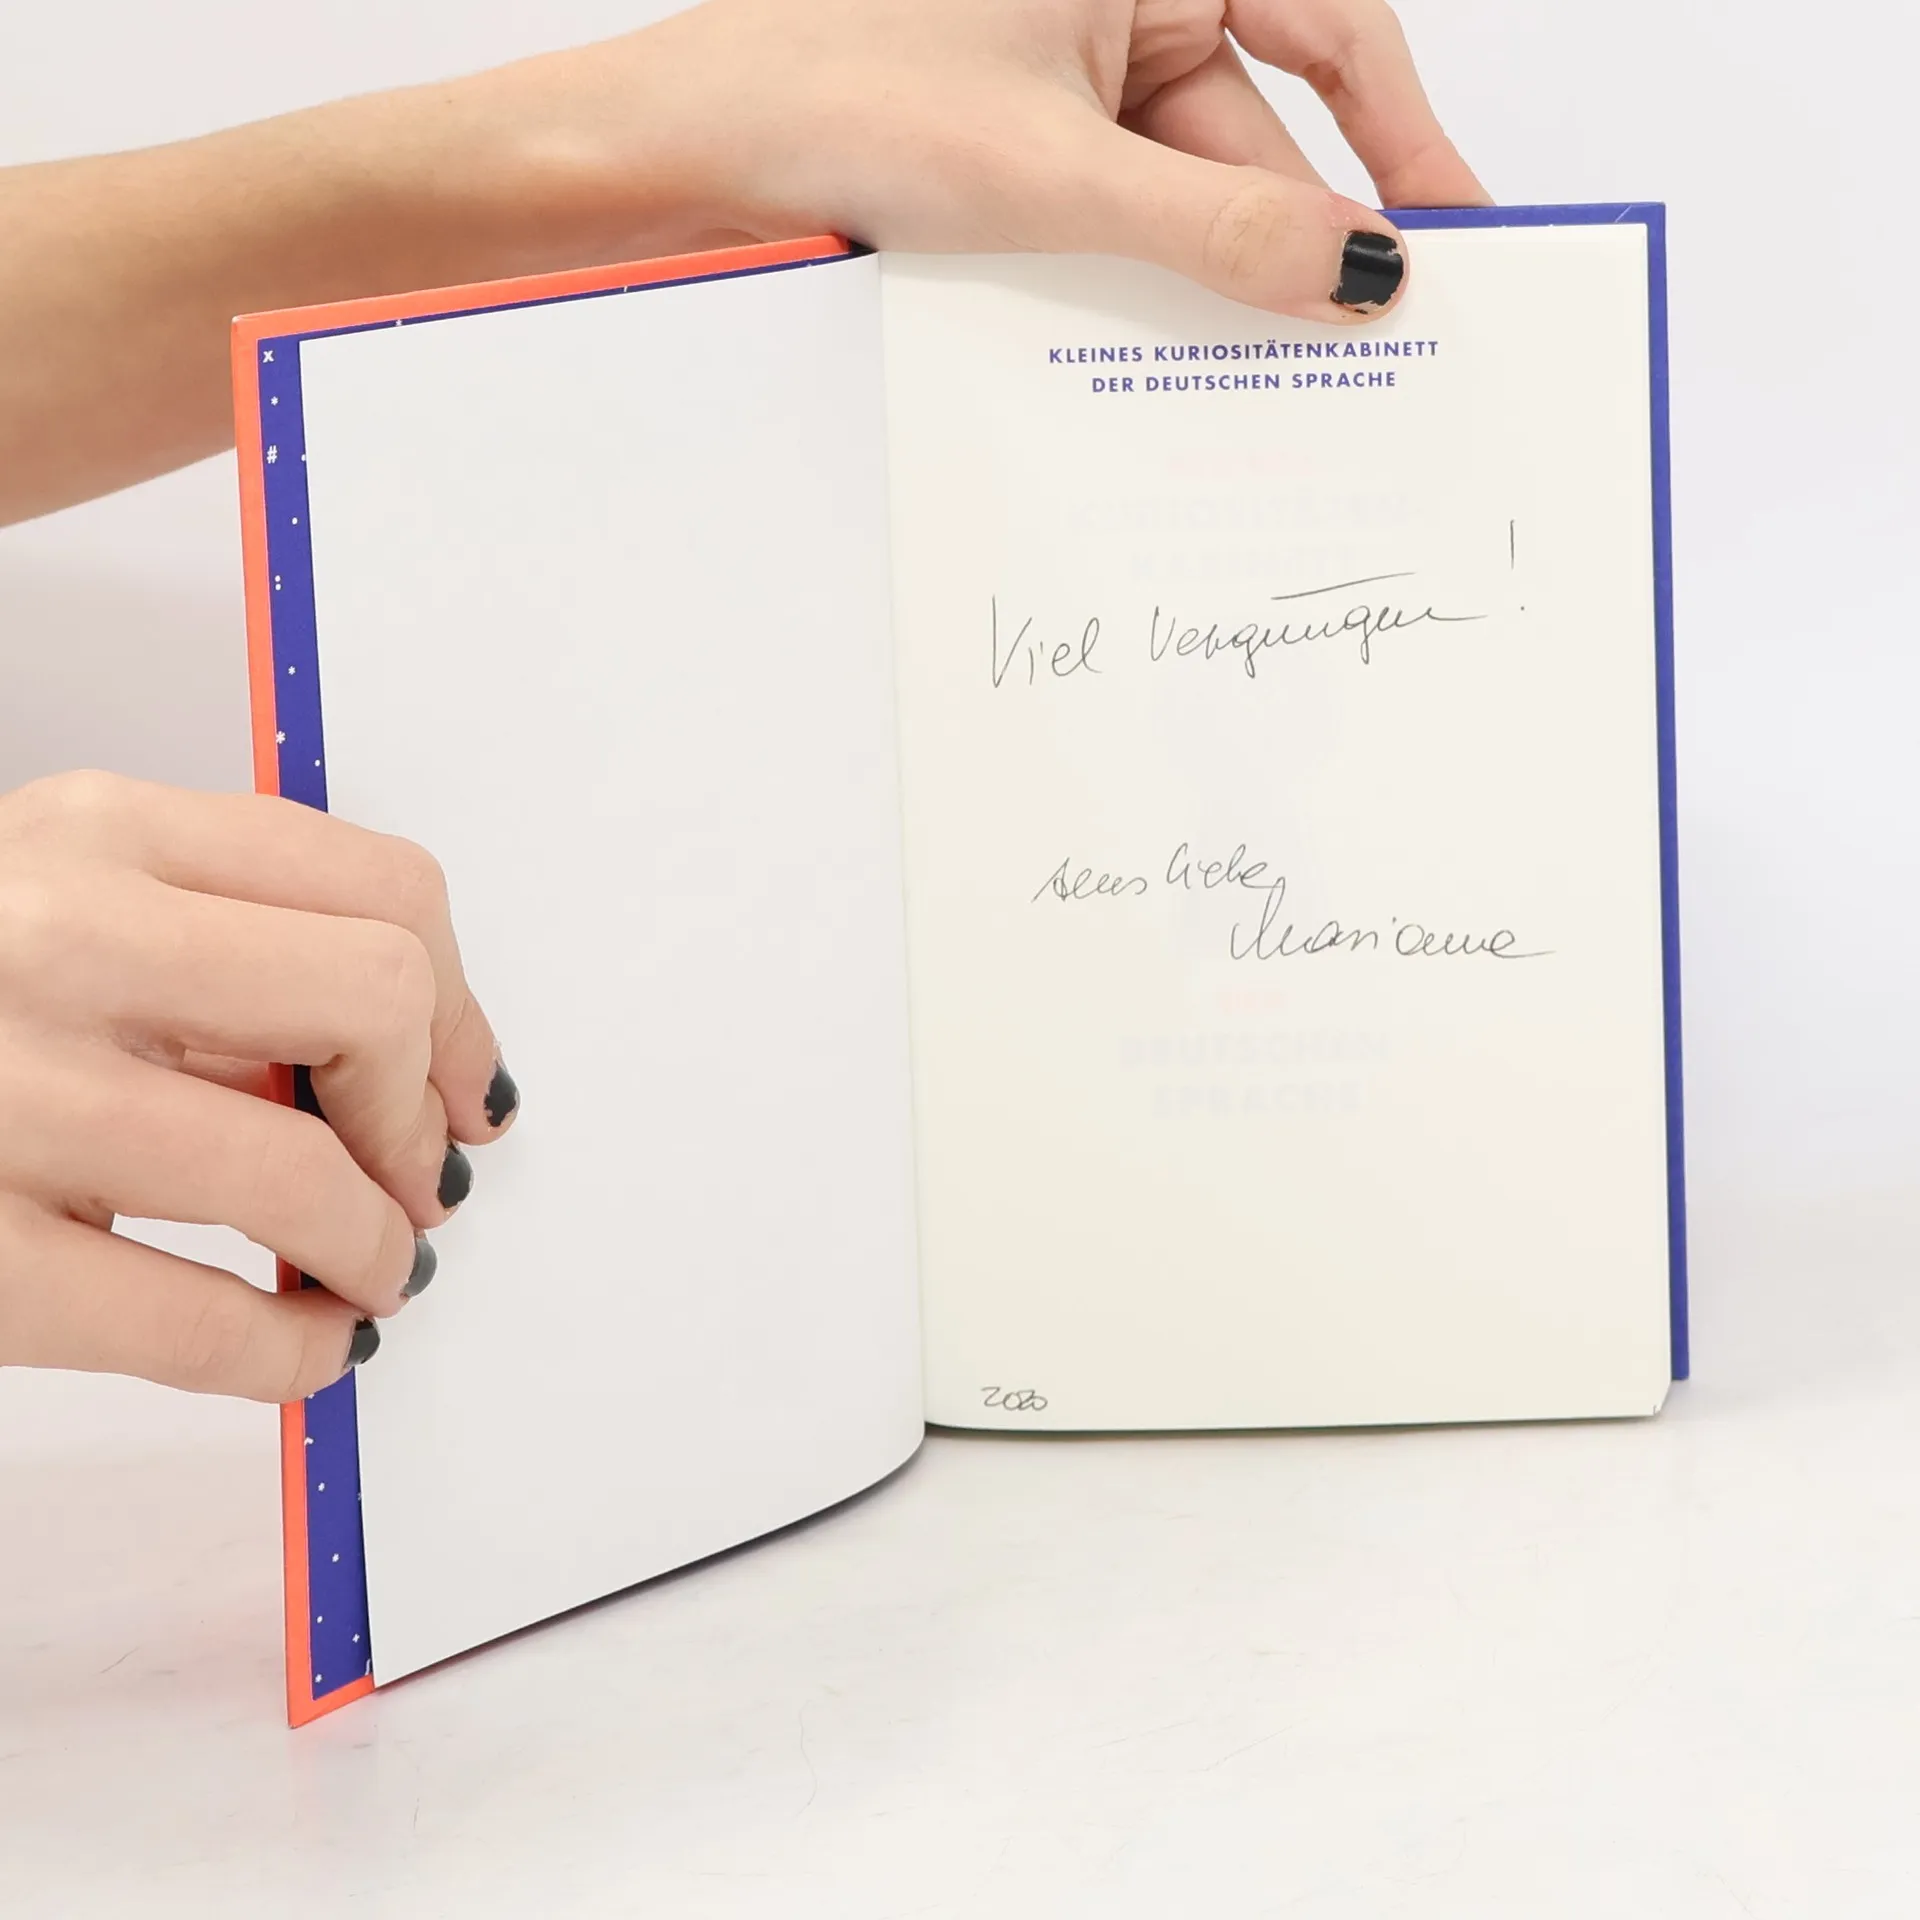 KLEINES KURIOSITÄTENKABINETT
DER DEUTSCHEN SPRACHE
Viel Vergnügen!
alles Liebe,
Marianne
2020